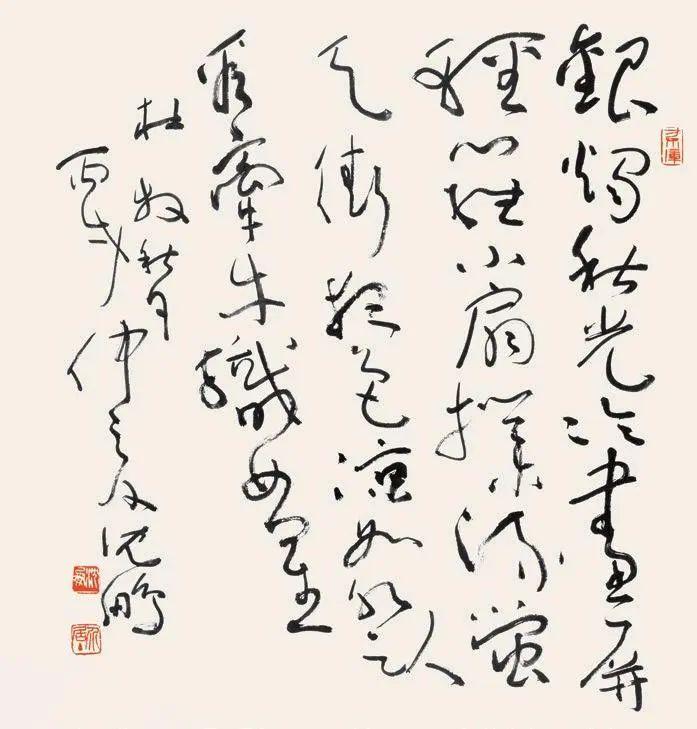 銀燭秋光冷畫屏
輕羅小扇撲流螢
天街夜色涼如水臥
看牽牛織女星
杜牧秋夕
丙戌仲夏沈鵬